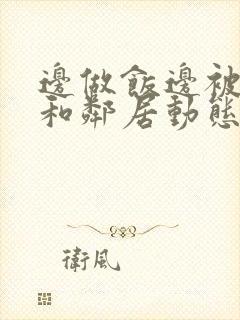 邊做飯邊被
和鄰居動態
衛風